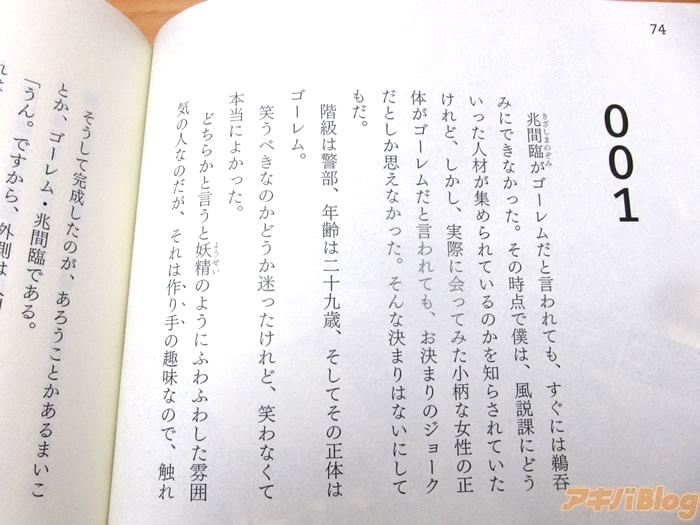 74
001
兆間臨がゴーレムだと言われても、すぐには鵜呑
きざしまのぞみ
みにできなかった。その時点で僕は、風説課にどう
いった人材が集められているのかを知らされていた
けれど、しかし、実際に会ってみた小柄な女性の正
体がゴーレムだと言われても、お決まりのジョーク
だとしか思えなかった。そんな決まりはないにして
もだ。
階級は警部、年齢は二十九歳、そしてその正体は
ゴーレム。
笑うべきなのかどうか迷ったけれど、笑わなくて
本当によかった。
どちらかと言うと妖精のようにふわふわした雰囲
ようせい
気の人なのだが、それは作り手の趣味なので、触れ
そうして完成したのが、あろうことかあるまいこ
とか、ゴーレム・兆間臨である。
「うん。ですから、外側は
アキバBlog